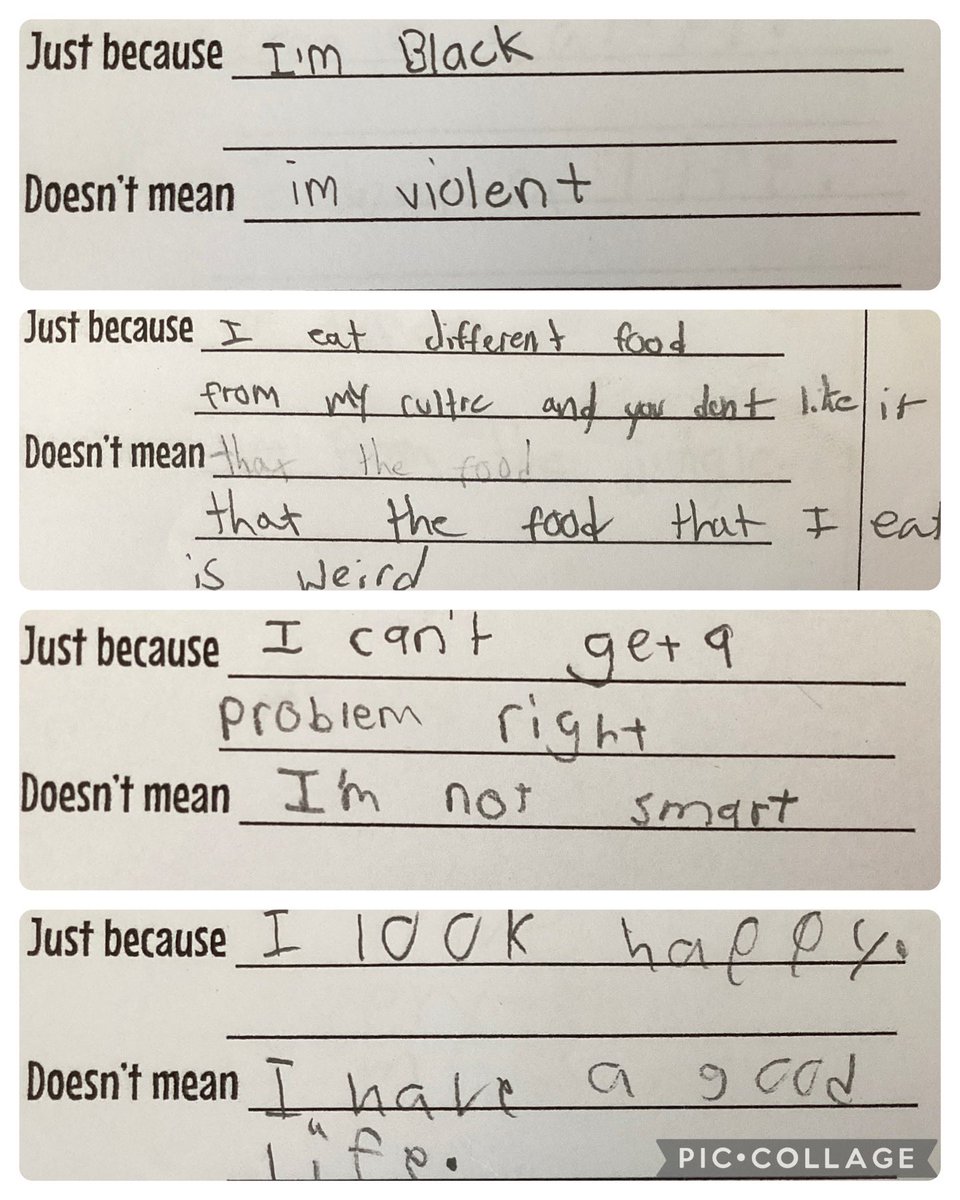 Just because I'm Black
Doesn't mean im violent
Just because I eat different food
from my cultre and you dont like it
Doesn't mean that the food
that the food that I eat
is weird
Just because I can't get a
problem right
Doesn't mean I'm not smart
Just because I look happy.
Doesn't mean I have a good
life.
PIC•COLLAGE